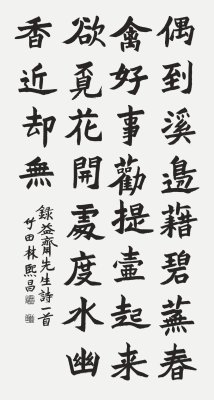 偶到溪邊藉碧蕪春
禽好事勸提壺起来
欲覓花開處度水幽
香近却無
錄益齋先生詩一首
竹田林熙昌